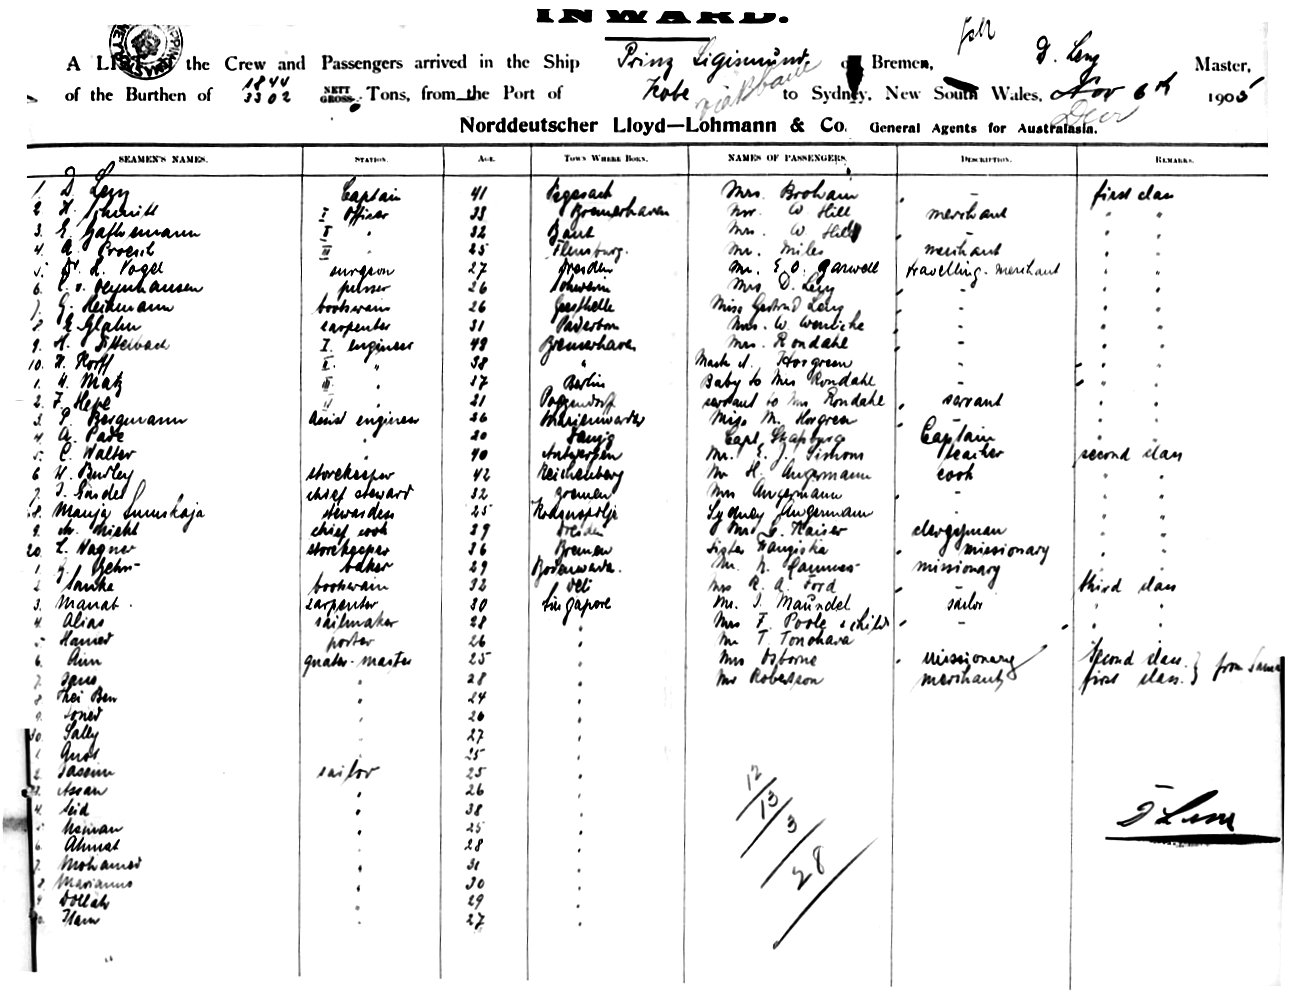 INWARD.
A LIST of the Crew and Passengers arrived in the Ship Prinz Sigismund of Bremen, D. Leny Master,
of the Burthen of 1844 3302 NETT GROSS Tons, from the Port of Kobe to Sydney, New South Wales, Nov 6th 1905
Norddeutscher Lloyd—Lohmann & Co. General Agents for Australasia.
SEAMEN'S NAMES. STATION. AGE. TOWN WHERE BORN. NAMES OF PASSENGERS. DESCRIPTION. REMARKS.
1. D. Leny Captain 41 Mrs. Broham - first class
2. H. Schmitt I officer 33 Bremerhaven Mr. W. Hill merchant " "
3. E. II " 32 Bant Mrs. W Hill - " "
4. A. III " 25 Flensburg. Mr. Miles merchant " "
5. Dr. H. Vogel surgeon 27 Dresden Mr. E. O. Garwell travelling-merchant " "
6. C. v. Oeynhausen purser 26 Schwerin Mrs D. Leny - " "
7. G. Heitmann bootswain 26 Geesthelle Miss Gertrud Leny - " "
8. E. Glahn carpenter 31 Paderborn Mrs. W. - " "
9. H. I. engineer 49 Bremerhaven Mrs. Rondahl - " "
10. H. Korff II. " 38 " Horgreen - " "
1. H. Matz III " 27 Berlin Baby to Mrs Rondahl - " "
2. F. Hepe " 21 Poggendorff servant to Mrs Rondahl servant " "
3. P. Bergmann assist engineer 26 Marienwerder Miss M. Horgreen " "
4. A. Pade " 20 Danzig Capt. Captain "
5. C. Walter " 40 Antwerpen Mr. E. J. Simons teacher second class
6 W. Burley storekeeper 42 Reichenberg Mr H. Angermann cook " "
7. chief steward 32 Bremen Mrs Angermann - " "
8. Manja Sumskaja stewardess 25 Sydney Angermann - " "
9. chief cook 39 Dresden Mrs G. Kaiser clergyman " "
20. L. Wagner storekeeper 36 Bremen Sister missionary " "
1. Behn baker 29 Bodenwerder. Mr. N. missionary " "
2 bootswain 32 Deli Mrs R. A. Ford - third class
3. Manat. carpenter 30 Singapore Mr. J. Maundel sailor " "
4. Alias sailmaker 28 " Mrs F. Poole & child - " "
5 Hamed porter 26 " Mr T. Tonohara
6. Amin quater-master 25 " Mrs Osborne missionary second class } from
7. " 28 " Mr Robertson merchant first class }
8 Ben " 24 "
9. " 26 "
30. Sally " 27 "
1. " 25 "
2. sailor 25 "
3. Assan " 26 "
4. Seid " 38 "
5. Usman " 25 "
6. Ahmat " 28 "
7. Mohamed " 31 "
8. Marianus " 30 "
9. Dollah " 29 "
" 27 "
12
13
3
28